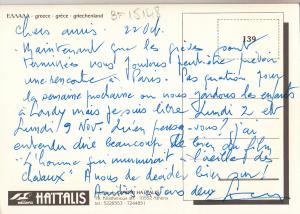 Ελλάς · greece · grèce · griechenland
BF 15148
139
Chers amis. 22 Oct.
Maintenant que les grèves sont
terminées nous pouvons peut-être prévoir
une rencontre à Paris. Pas question pour
la semaine prochaine où nous gardons les enfants
à Lardy mais je suis libre Lundi 2 et
Lundi 9 Nov. Qu'en pensez-vous? J'ai
entendu dire beaucoup de bien du film
"L'homme qui murmurait à l'oreille des
chevaux". A vous de décider bien sûr
Amitiés à vous deux
HAITALIS
editions